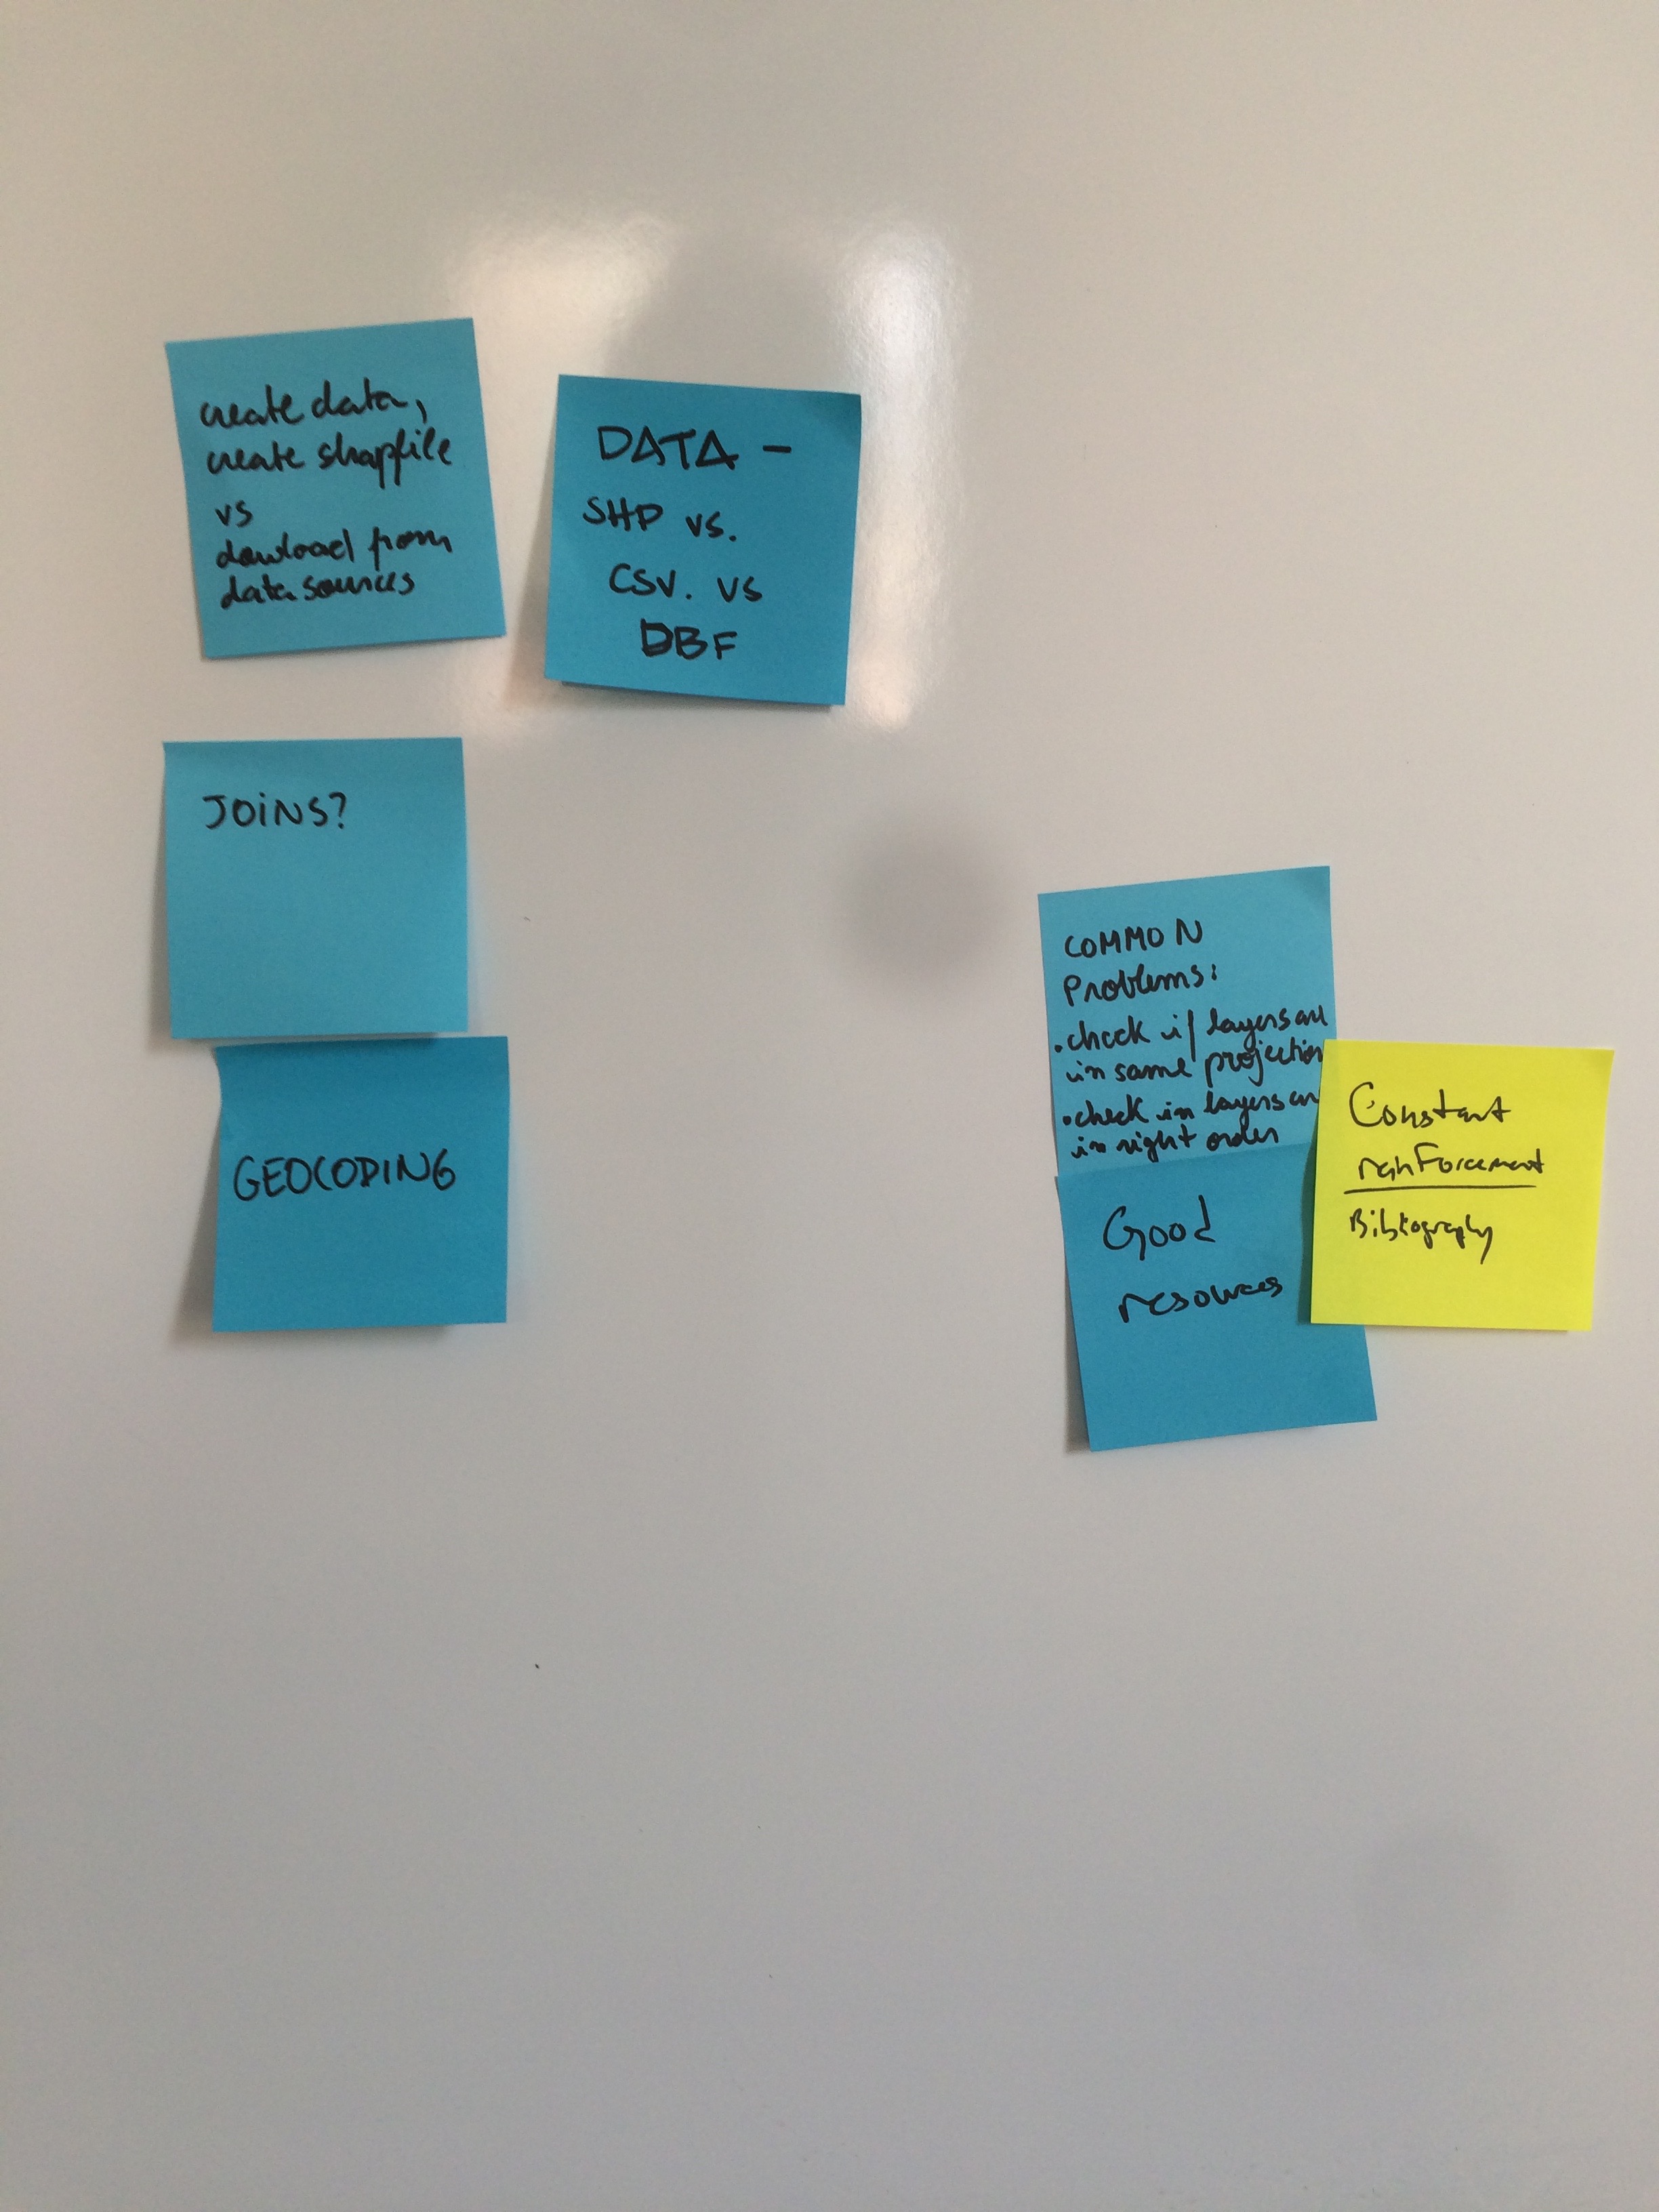 create data,
create shapfile
vs
dowload from
data sources
DATA -
SHP vs.
CSV. vs
DBF
JOiNS?
GEOCODING
COMMON
Problems:
. check if layers are
in same projection
. check in layers are
in right order
Good
resources
Constant
Bibliography